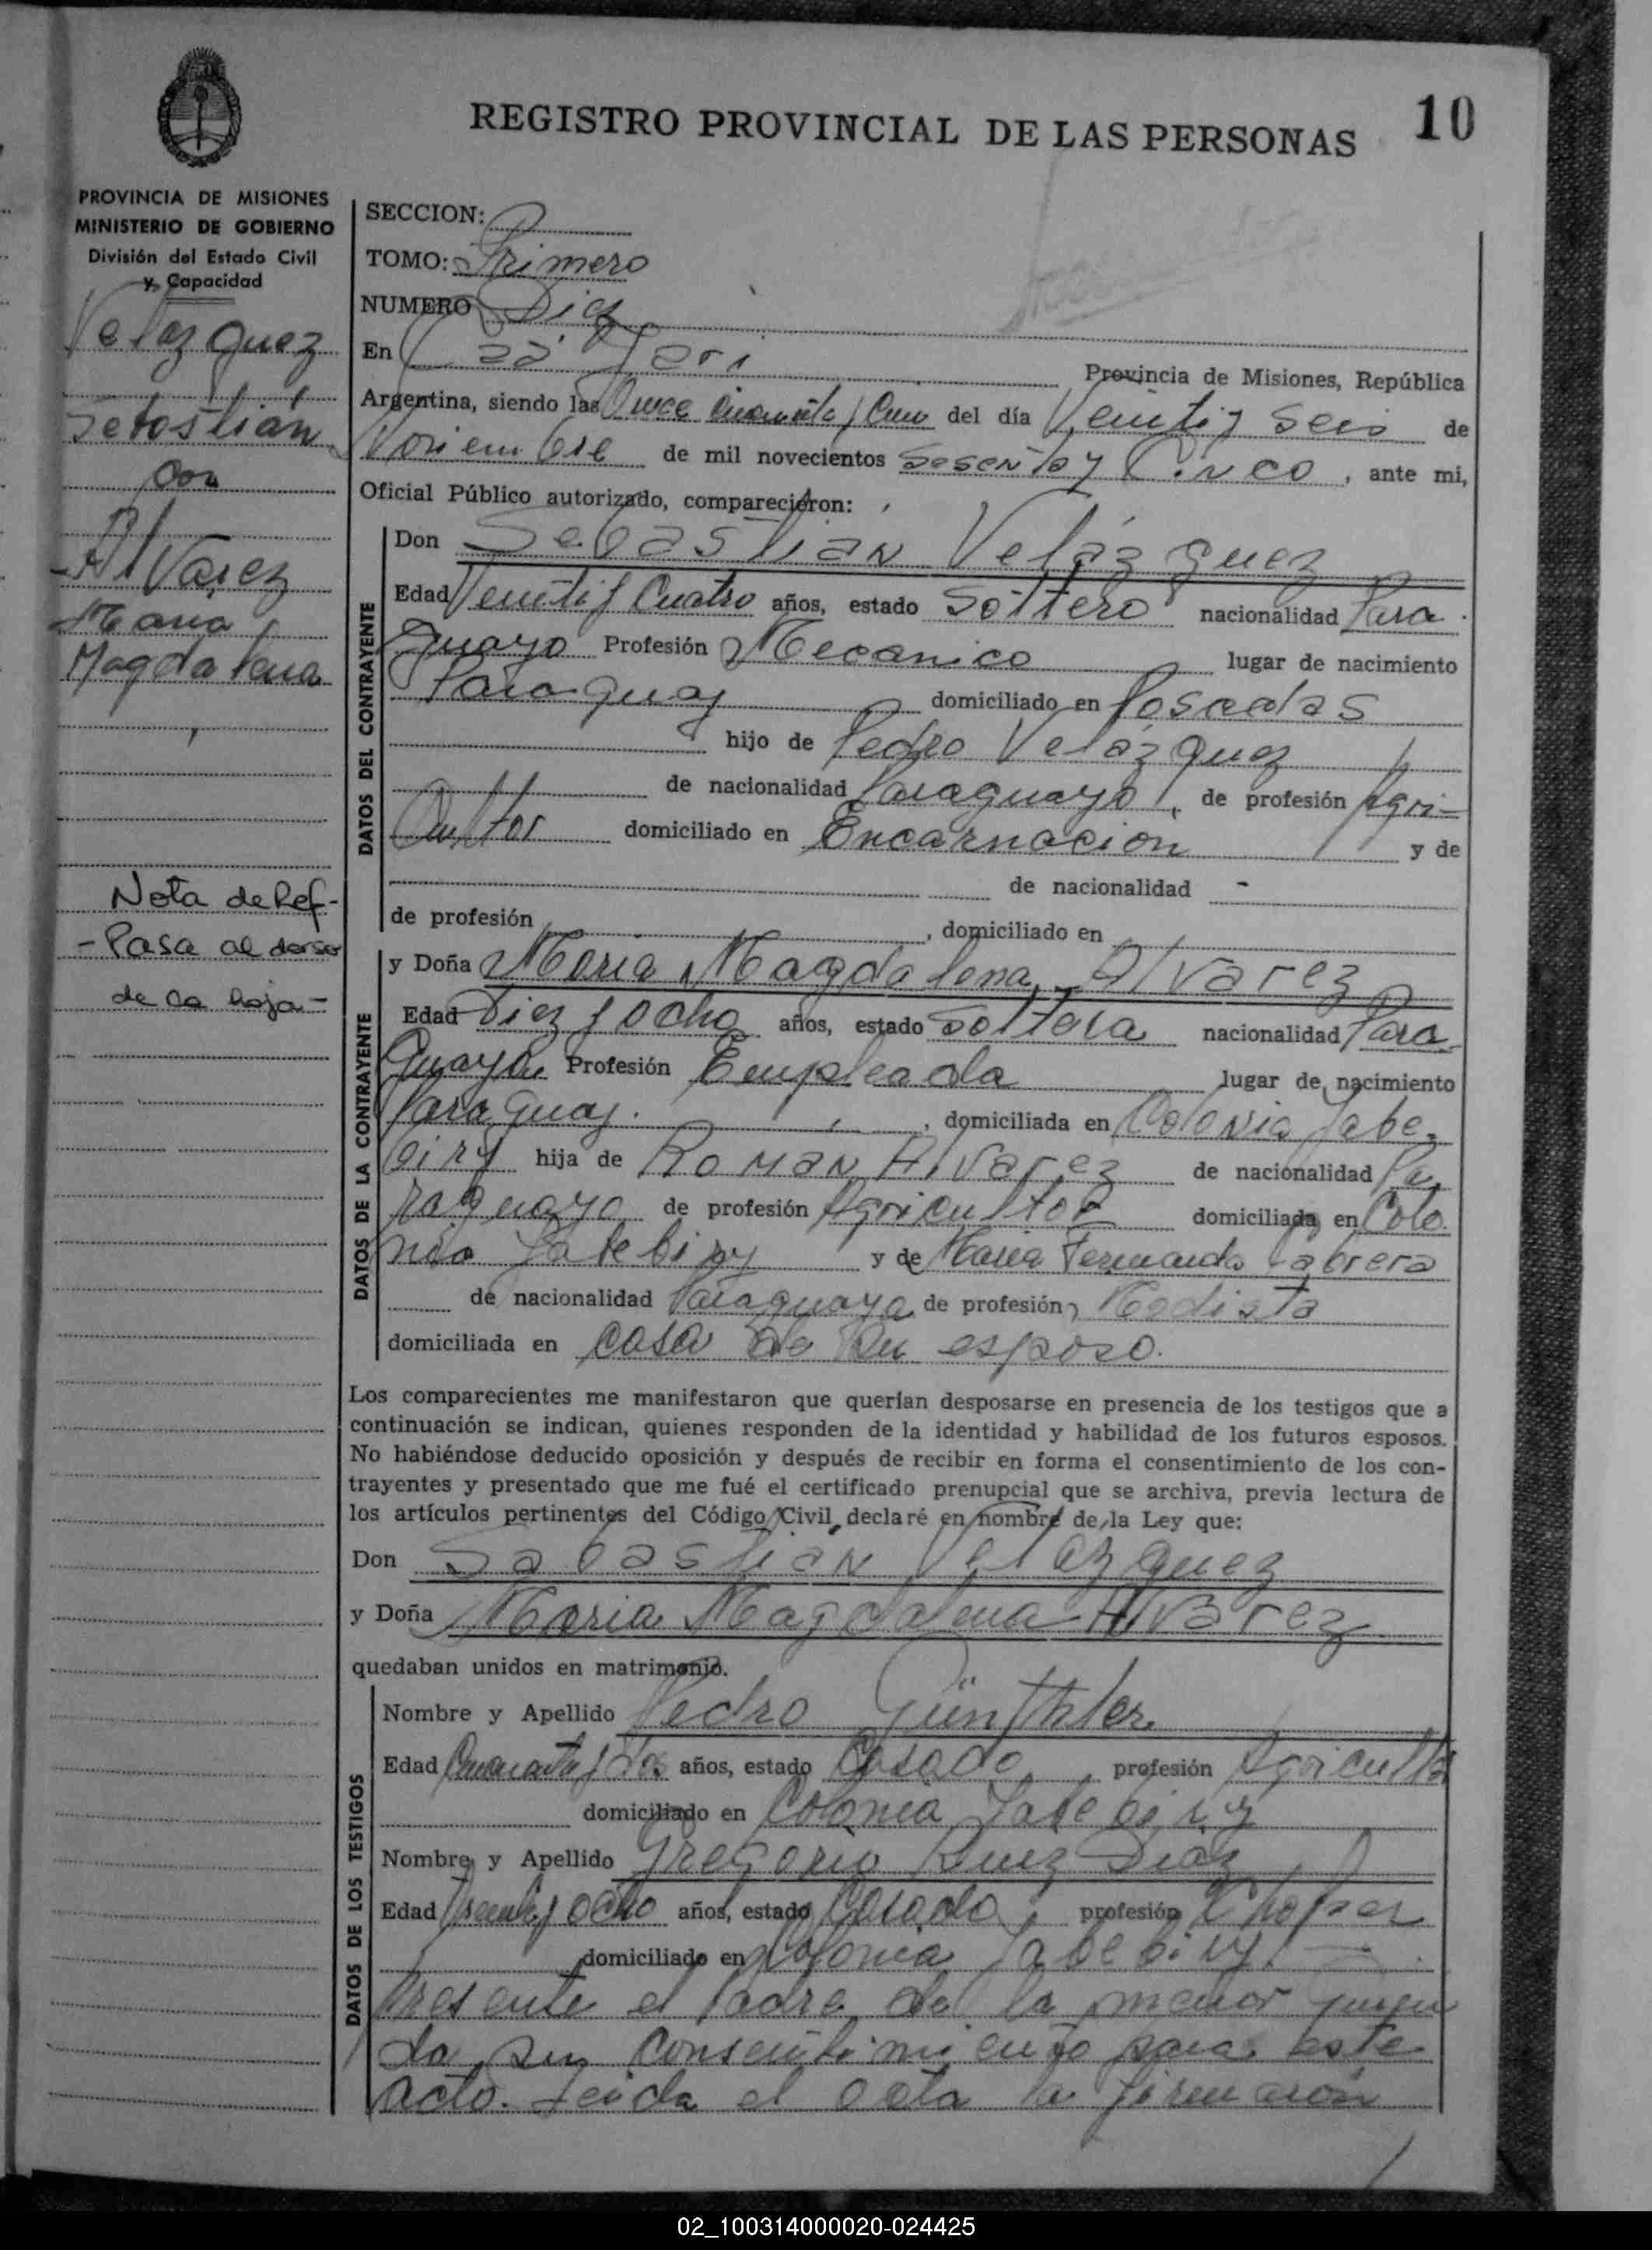 REGISTRO PROVINCIAL DE LAS PERSONAS
10
PROVINCIA DE MISIONES
MINISTERIO DE GOBIERNO
División del Estado Civil
y Capacidad
Velazquez
Sebastián
con
Alvarez
Maria
Magdalena
Nota de Ref-
- Pasa al dorso
de la hoja -
SECCION:
TOMO: Primero
NUMERO Diez
En Caá Yari Provincia de Misiones, República
Argentina, siendo las Once Cuarenta y Cinco del día Veinti y Seis de
Noviembre de mil novecientos Sesenta y Cinco, ante mi,
Oficial Público autorizado, comparecieron:
DATOS DEL CONTRAYENTE
Don Sebastian Velázquez
Edad Veinti y Cuatro años, estado Soltero nacionalidad Para
guayo Profesión Mecanico lugar de nacimiento
Paraguay domiciliado en Posadas
hijo de Pedro Velázquez
de nacionalidad Paraguayo, de profesión Agri-
cultor domiciliado en Encarnacion y de
de nacionalidad -
de profesión , domiciliado en
DATOS DE LA CONTRAYENTE
y Doña Maria Magdalena Alvarez
Edad Diez y ocho años, estado Soltera nacionalidad Para
guaya Profesión Empleada lugar de nacimiento
Paraguay. , domiciliada en Colonia Yabe-
biry hija de Roman Alvarez de nacionalidad Pa
raguayo de profesión Agricultor domiciliada en Colo
nia Yabebiry y de Maria Fernanda Cabrera
de nacionalidad Paraguaya de profesión Modista
domiciliada en casa de su esposo.
Los comparecientes me manifestaron que querían desposarse en presencia de los testigos que a
continuación se indican, quienes responden de la identidad y habilidad de los futuros esposos.
No habiéndose deducido oposición y después de recibir en forma el consentimiento de los con-
trayentes y presentado que me fué el certificado prenupcial que se archiva, previa lectura de
los artículos pertinentes del Código Civil, declaré en nombre de la Ley que:
Don Sabastian Velazquez
y Doña Maria Magdalena Alvarez
quedaban unidos en matrimonio.
DATOS DE LOS TESTIGOS
Nombre y Apellido Pedro Günthler
Edad Cuarenta y dos años, estado Casado profesión Agricultor
domiciliado en Colonia Yabebiry
Nombre y Apellido Gregorio Ruiz Diaz
Edad Treinta y ocho años, estado Casado, profesión Chofer
domiciliado en Colonia Yabebiry.
Presente el Padre de la menor quien
da su consentimiento para este
acto. Leida el acta la firmaron
02_100314000020-024425